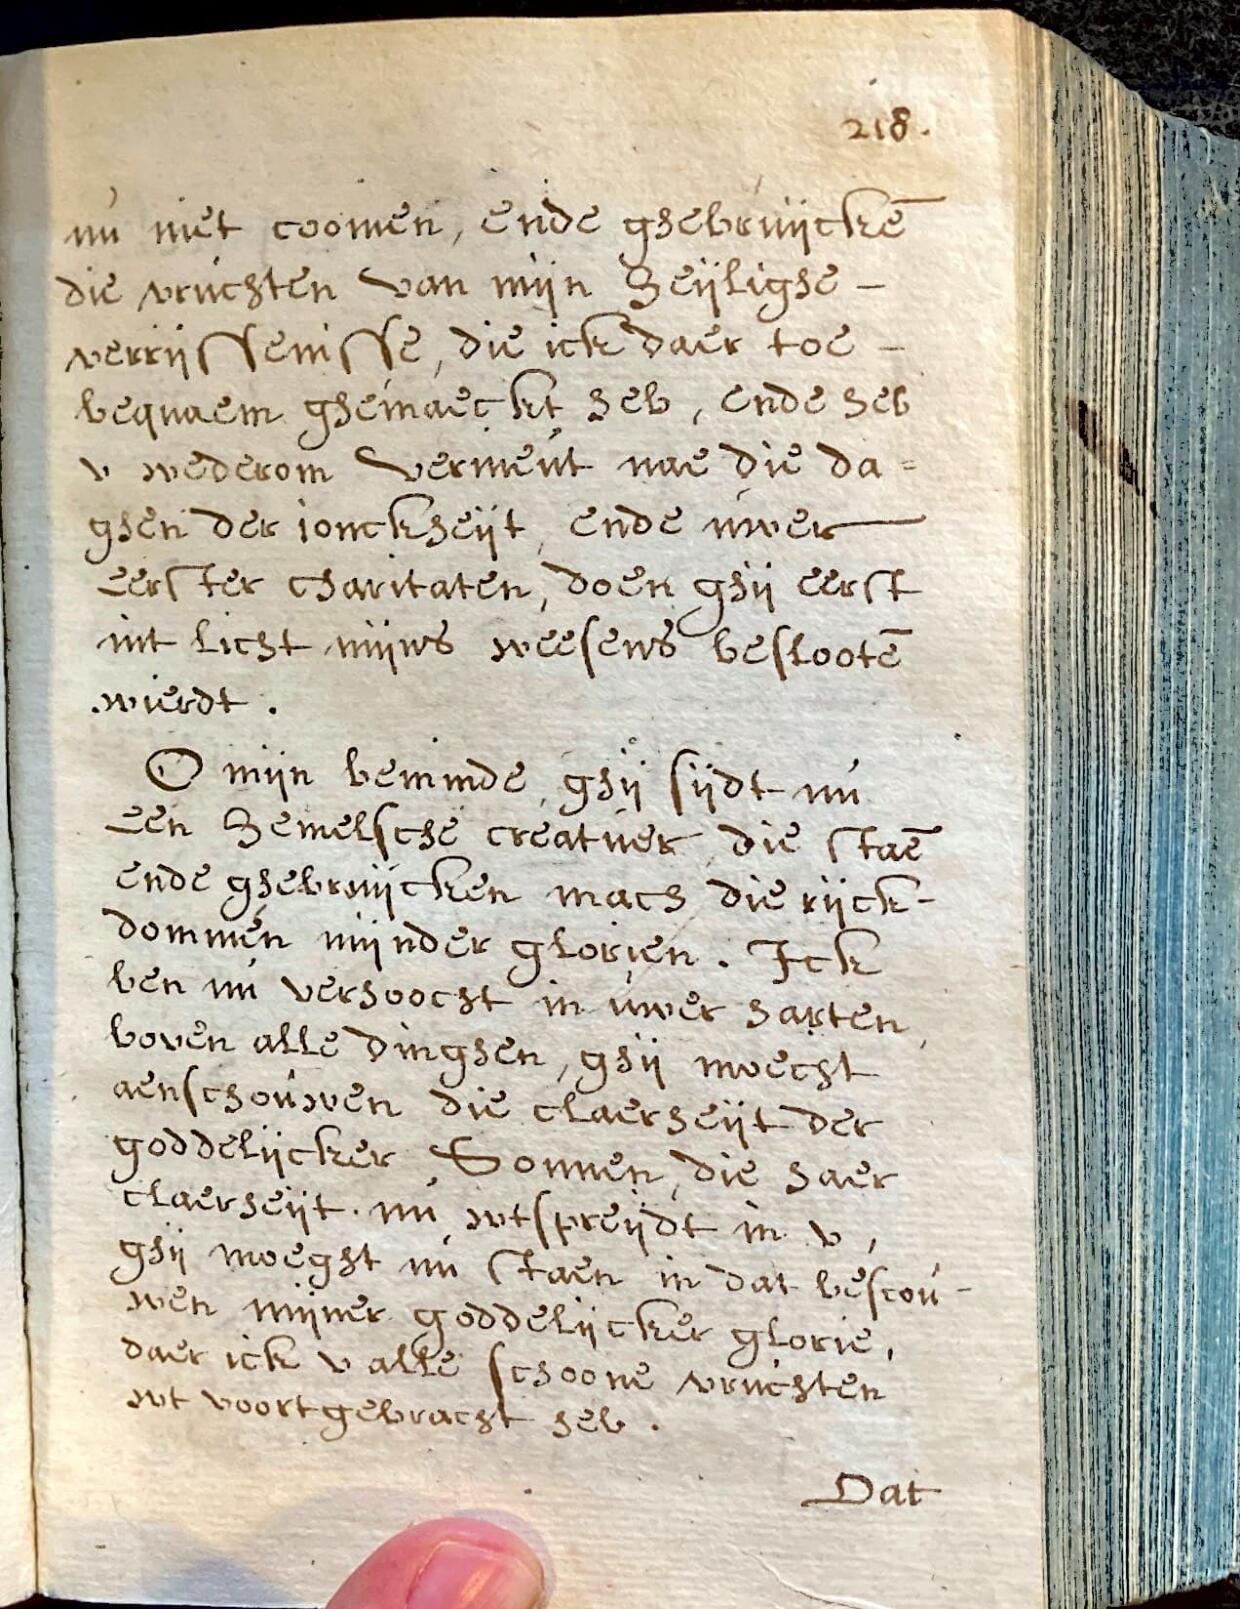 218.
nú niet coomen, ende ghebruijckē
die vruchten van mijn heijlighe –
verrijssenisse, die ick daer toe –
bequaem ghemaeckt heb, ende heb
v wederom vernieút nae die da=
ghen der ionckheijt, ende úwer
eerster charitaten, doen ghij eerst
int licht mijns weesens beslootē
wierdt.
O mijn beminde, ghij sijdt nú
een hemelsche creatuer, die staē
ende ghebruijcken mach die rijck-
dommen mijnder glorien. Ick
ben nú verhoocht in úwer harten,
boven alle dinghen, ghij moecht
aenschoúwen die claerheijt der
goddelijcker Sonnen, die haer
claerheijt nú wtspreijdt in v,
ghij moeght nú staen in dat bescoú-
wen mijner goddelijcker glorie,
daer ick v alle schoone vruchten
wt voortgebracht heb.
Dat